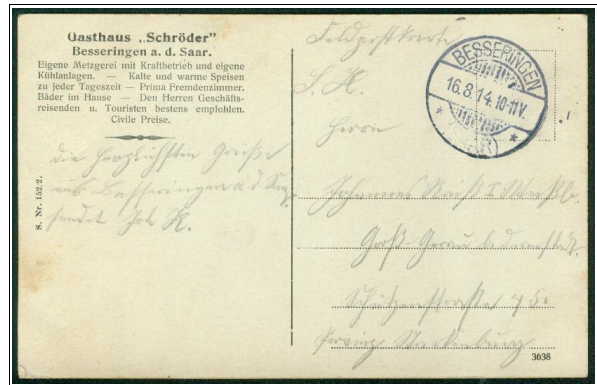 Gasthaus „Schröder"
Besseringen a. d. Saar.
Eigene Metzgerei mit Kraftbetrieb und eigene
Kühlanlagen. — Kalte und warme Speisen
zu jeder Tageszeit — Prima Fremdenzimmer.
Bäder im Hause — Den Herren Geschäfts-
reisenden u. Touristen bestens empfohlen.
Civile Preise.
Die herzlichsten Grüße
aus Besseringen a. d. Saar
sendet Joh
S. Nr. 1522.
Feldpostkarte
BESSERINGEN
16.8.14.10-11V.
S. H.
Herrn
Johannes
Groß-Gerau b. Darmstadt
Provinz Starkenburg
3638